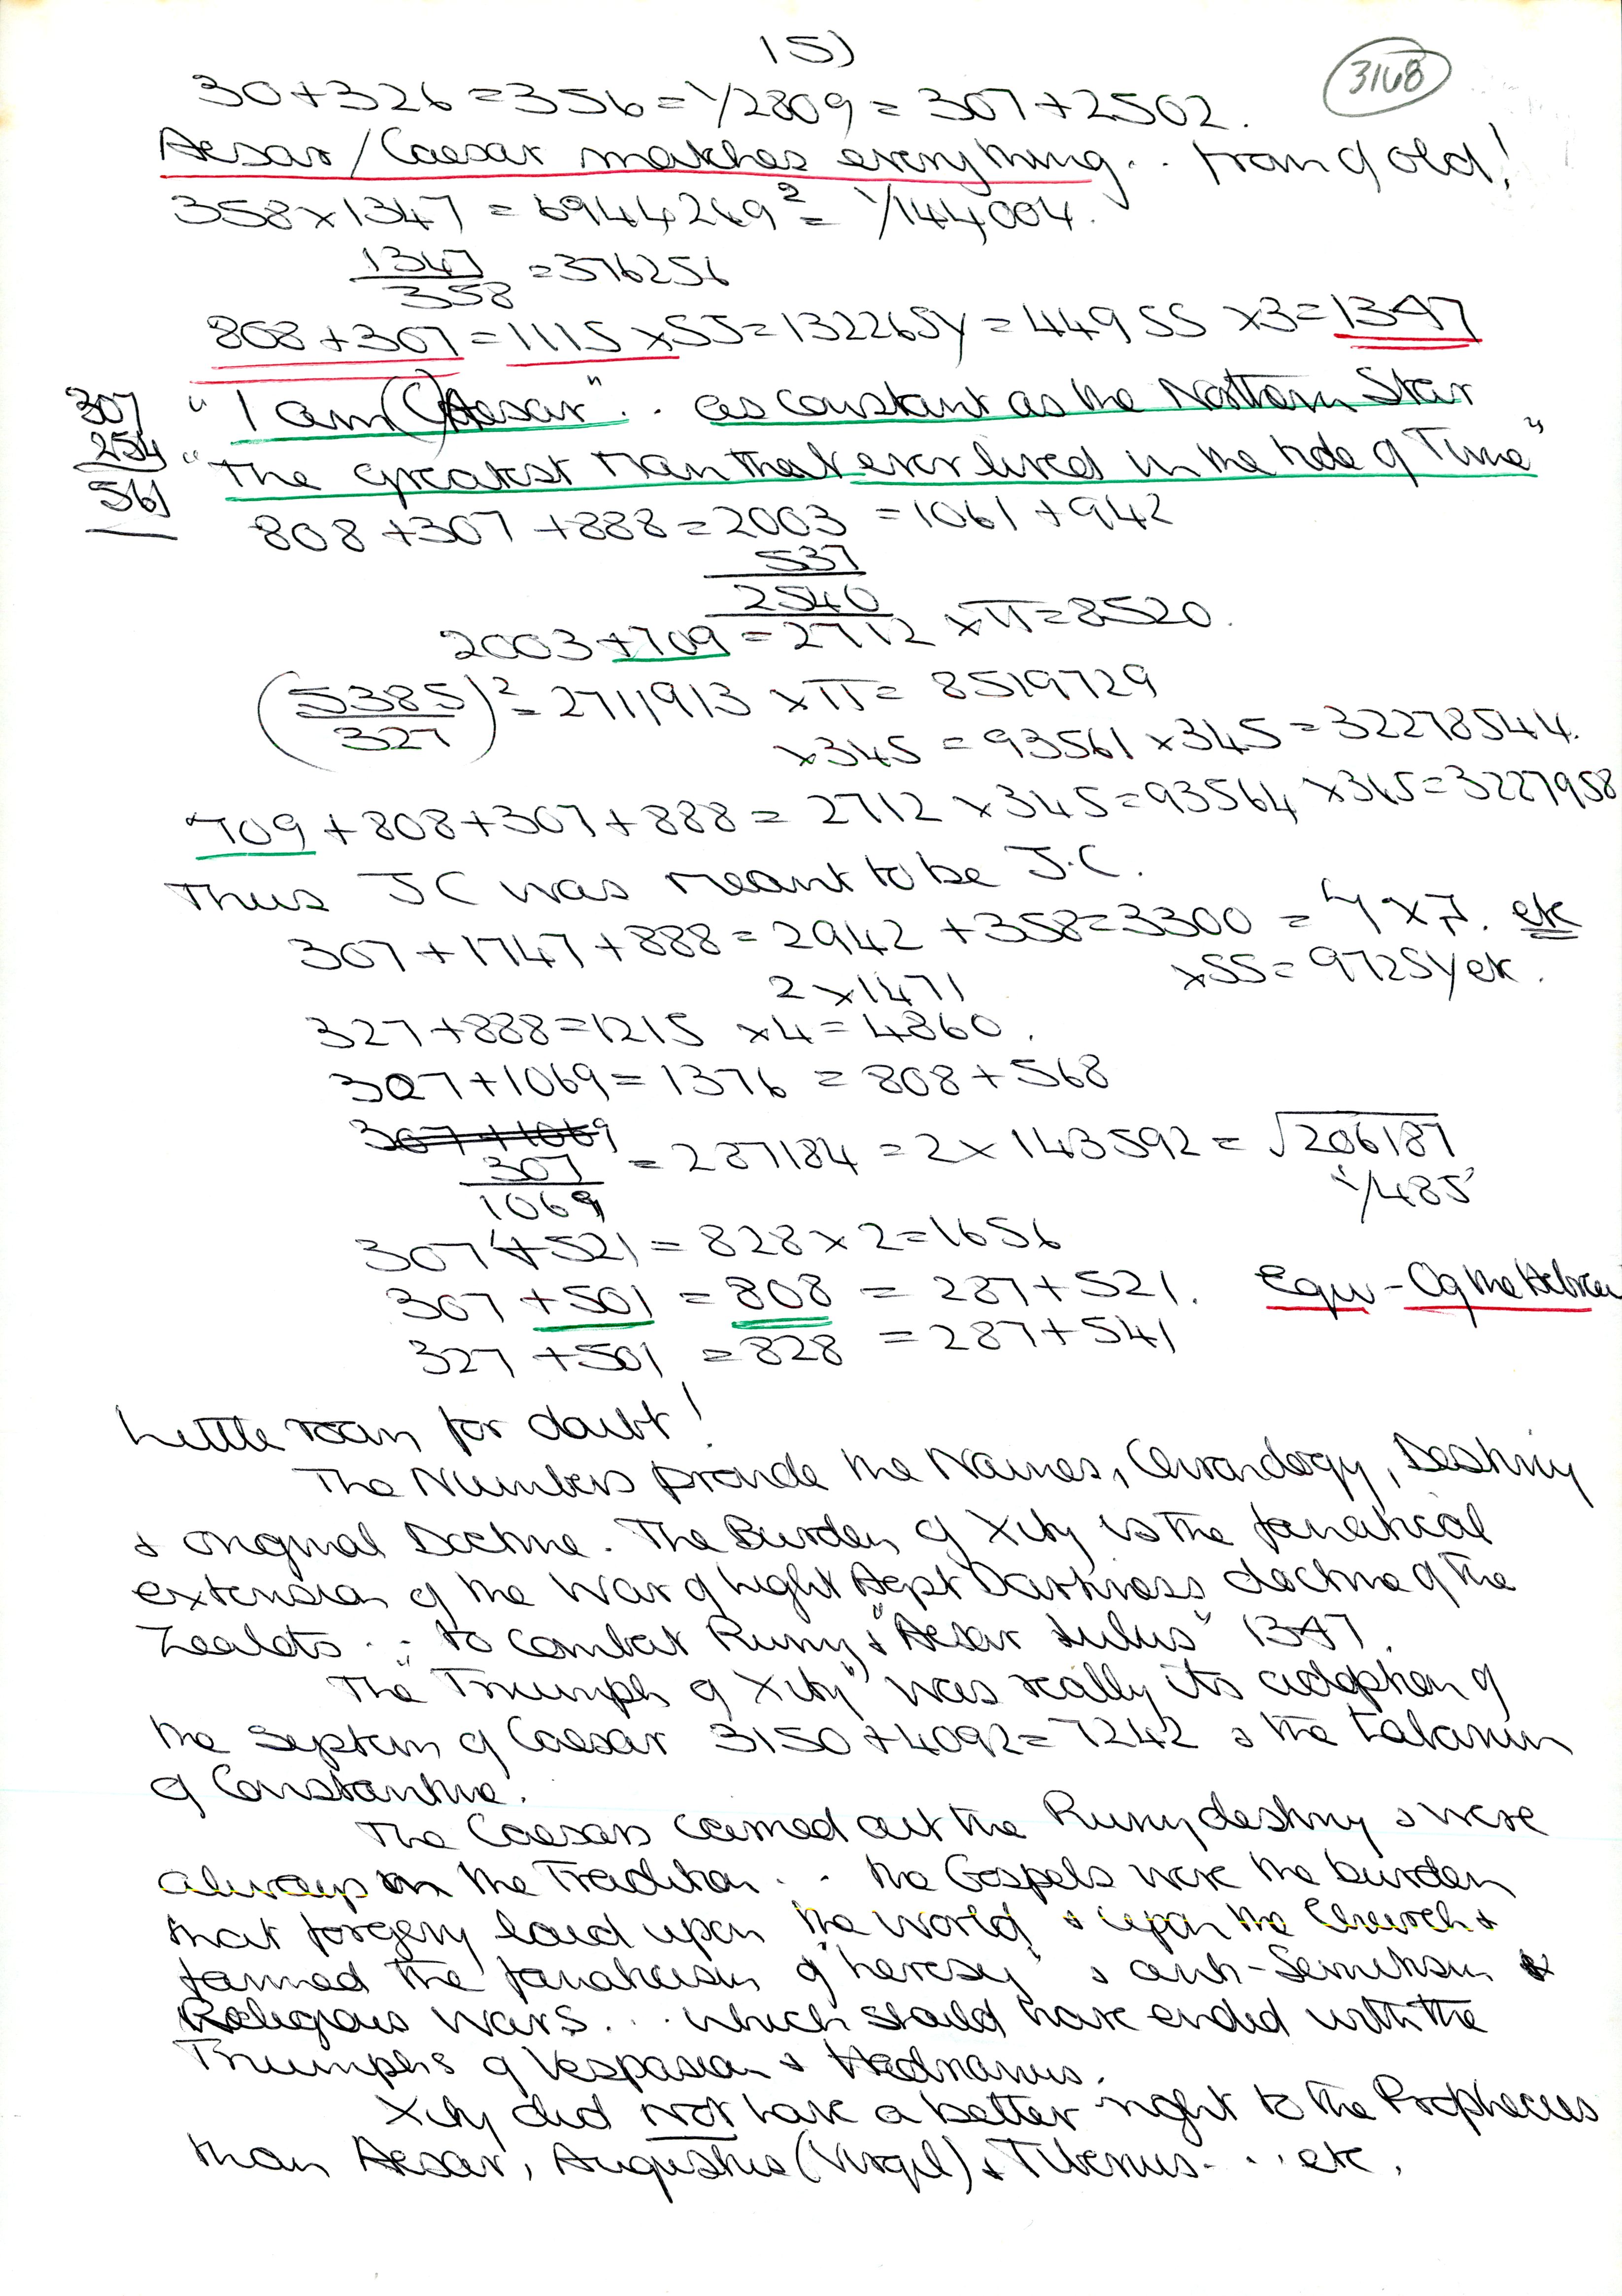 15)
3168
30+326=356=1/2809=307+2502.
Aesar/Caesar matches everything.. from of old!
358×1347=6944,269²=1/144,004.
1347/358=376256
808+307=1115×SS=132265Y=449SS×3=1347
307
254
561
"I am (C)Aesar".. as constant as the Northern Star
"The greatest man that ever lived in the tide of Time"
808+307+888=2003=1061+942
537
2540
2003+709=2712×π=8520.
(5385/327)²=2711913×π=8519729
×345=93561×345=32278544.
709+808+307+888=2712×345=93564×345=3227958
Thus JC was meant to be J.C.
307+1747+888=2942+358=3300
2×1471
×SS=9725Y etc.
327+888=1215×4=4860.
307+1069=1376=808+568
307+1069
307/1069=287184=2×143592=√206187
"1/485"
307+521=828×2=1656
307+501=808=287+521. Equiv-Og the Hebrew
327+501=828=287+541
Little room for doubt!
The Numbers provide the Names, Chronology, Destiny
& original Doctrine. The Burden of Xity is the fanatical
extension of the War of Light Agst Darkness doctrine of the
Zealots.. to combat Rumy & "Aesar Iulus" 1347.
The "Triumph of Xity" was really its adoption of
the System of Caesar 3150+4092=7242 & the
of Constantine.
The Caesars carried out the Rumy destiny & were
always on the Tradition.. the Gospels were the burden
that forgery laid upon the world & upon the Church &
formed the fanaticism of "heresy" & anti-Semitism &
Religious Wars... which should have ended with the
Triumphs of Vespasian & Hadrianus.
Xity did not have a better right to the Prophecies
than Aesar, Augustus (Virgil) & Tiberius... etc.